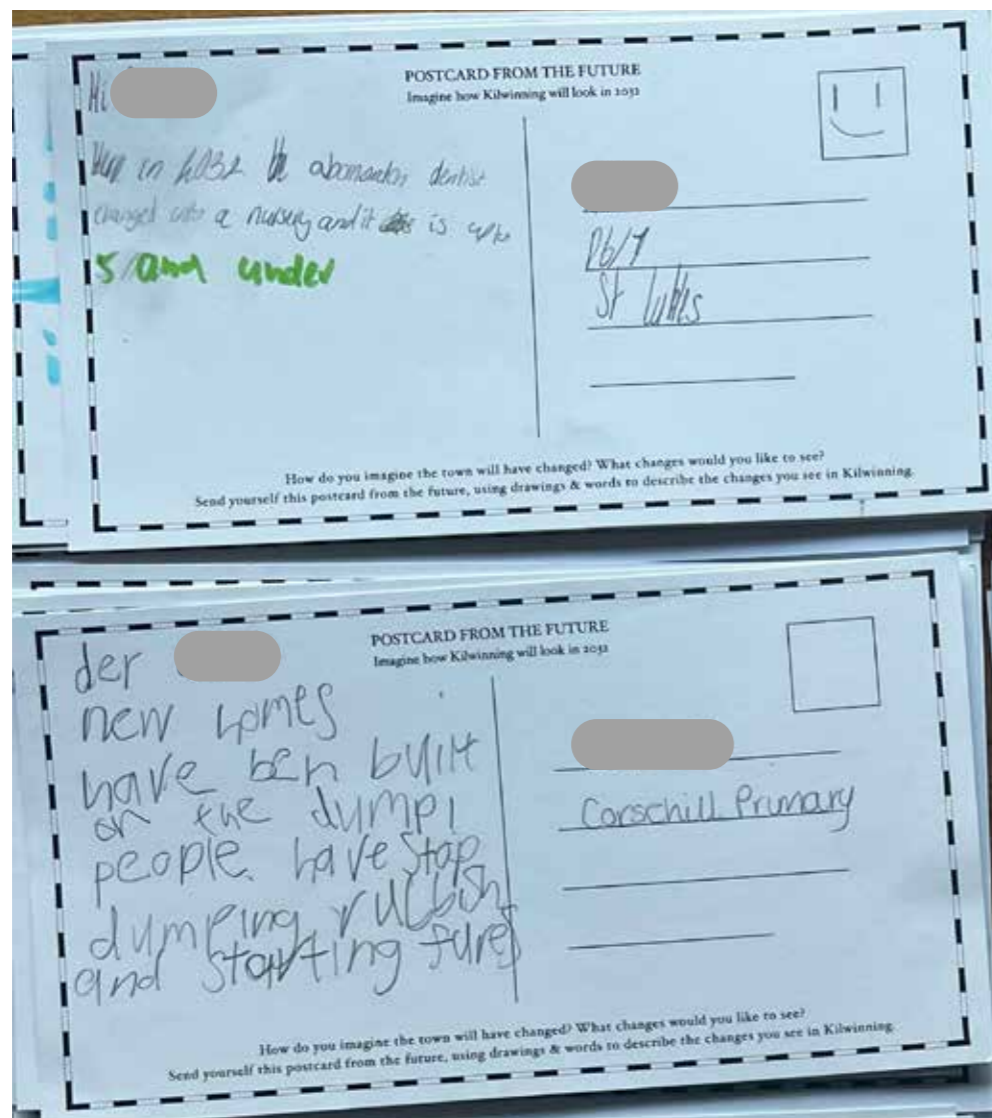 POSTCARD FROM THE FUTURE
Imagine how Kilwinning will look in 2032
Hi
in 2032 the dentist
changed into a nursery and it is
5 and under
P6/7
St Lukes
How do you imagine the town will have changed? What changes would you like to see?
Send yourself this postcard from the future, using drawings & words to describe the changes you see in Kilwinning.
POSTCARD FROM THE FUTURE
Imagine how Kilwinning will look in 2032
der
new homes
have ben built
on the dump
people have stop
dumping rubbish
and starting fures
Corschill Primary
How do you imagine the town will have changed? What changes would you like to see?
Send yourself this postcard from the future, using drawings & words to describe the changes you see in Kilwinning.